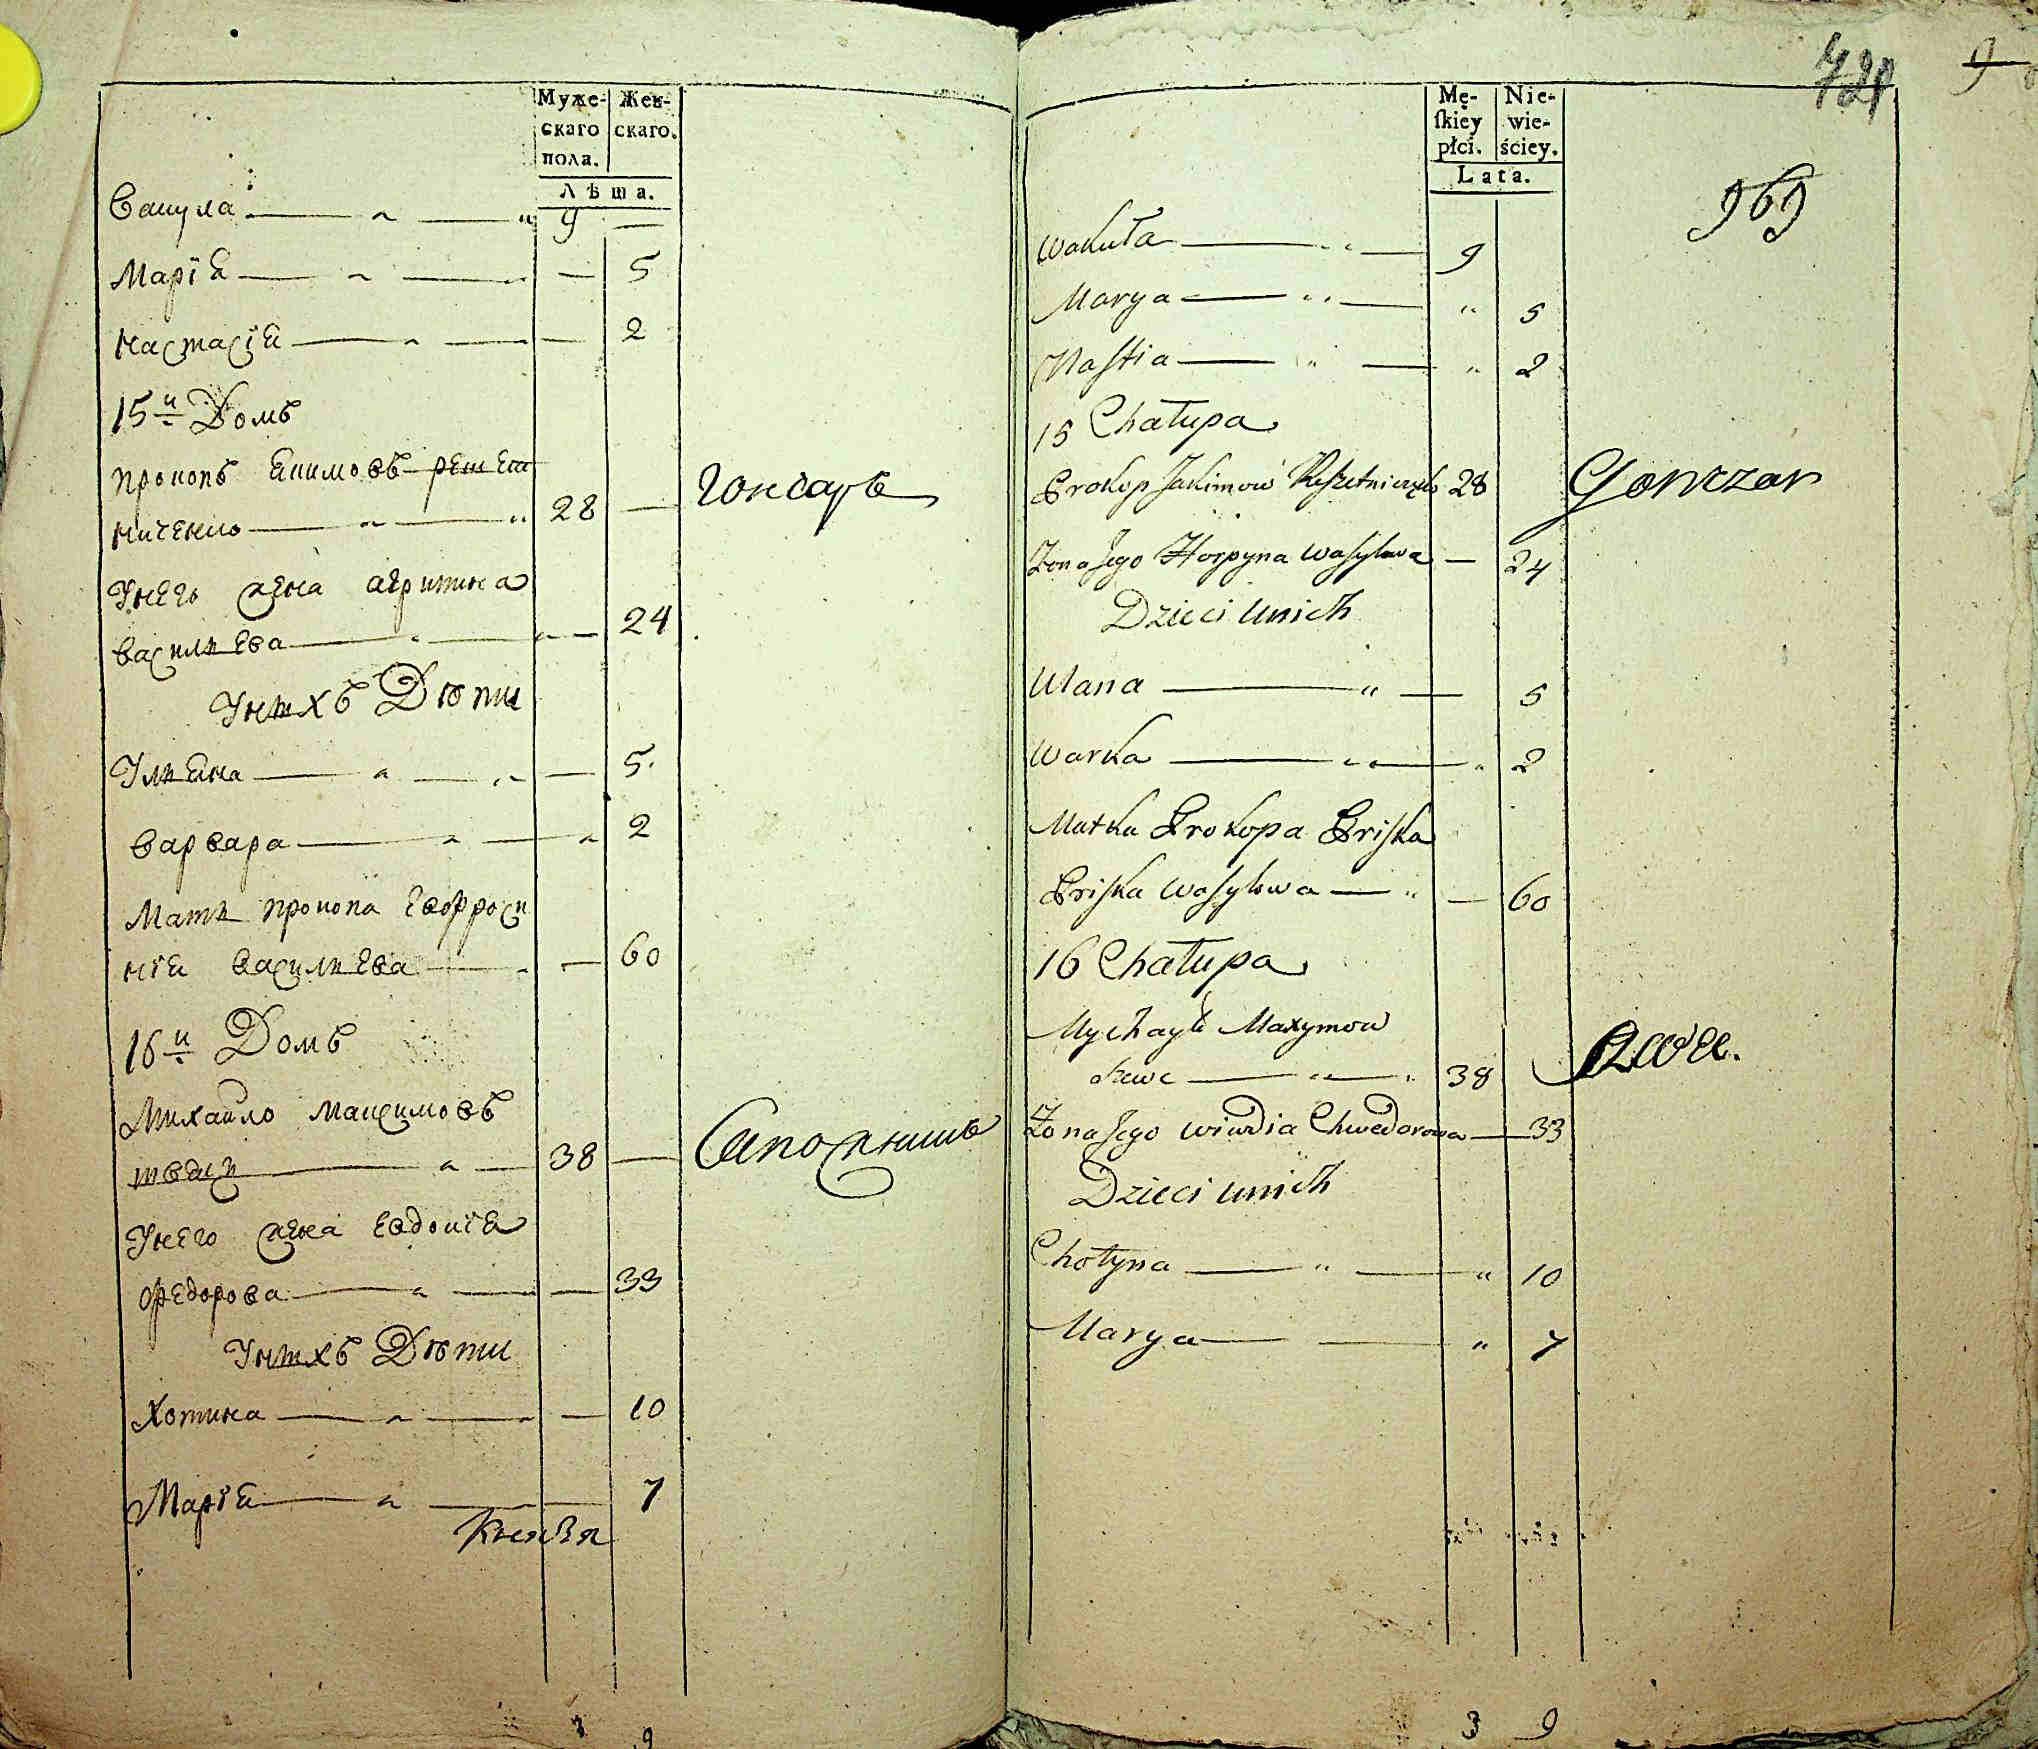 Муже-
скаго
пола.
Жен-
скаго.
Лѣта.
Вакула — " — " 9 —
Марїя — " — — 5
Настасїя — " — — 2
15й Домъ
Прокопъ Якимовъ решет
ниченко — " — " 28 — гончаръ
У него жена Агрипина
Васильева — " — " — 24
У нихъ Дѣти
Ульяна — " — " — 5.
Варвара — " — " 2
Мать Прокопа Евфроси
нїя Васильева — " — 60
16й Домъ
Михайло Максимовъ
швецъ — " — 38 — Сапожникъ
У него жена Евдокїя
Федорова — " — — 33
У нихъ Дѣти
Хотина — " — — 10
Марїя — " — — 7
Князя
3 9
421
9
Mę-
ſkiey
płci.
Nie-
wie-
ściey.
Lata.
969
Wakuła — " — 9
Marya — " — " 5
Naſtia — " — " 2
15 Chałupa
Prokop Jakimow Reszetniczenko 28 Gonczar
Żona Jego Horpyna Wasylowa — 24
Dzieci Unich
Ulana — " — 5
Warka — " — " 2
Matka Prokopa Priſka
Priſka Wasylowa — " — 60
16 Chałupa
Mychayło Maxymow
Szewc — " — " 38 Szwec.
Żona Jego Wiwdia Chwedorowa — 33
Dzieci unich
Chotyna — " — " 10
Marya — — " 7
3 9